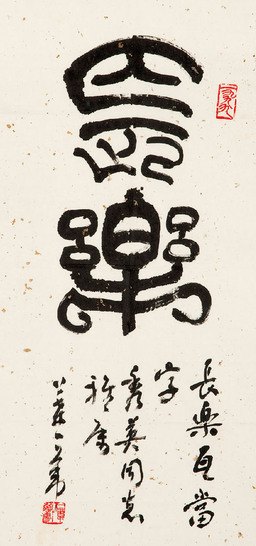 長樂
長樂瓦當
字
秀英同志
雅屬